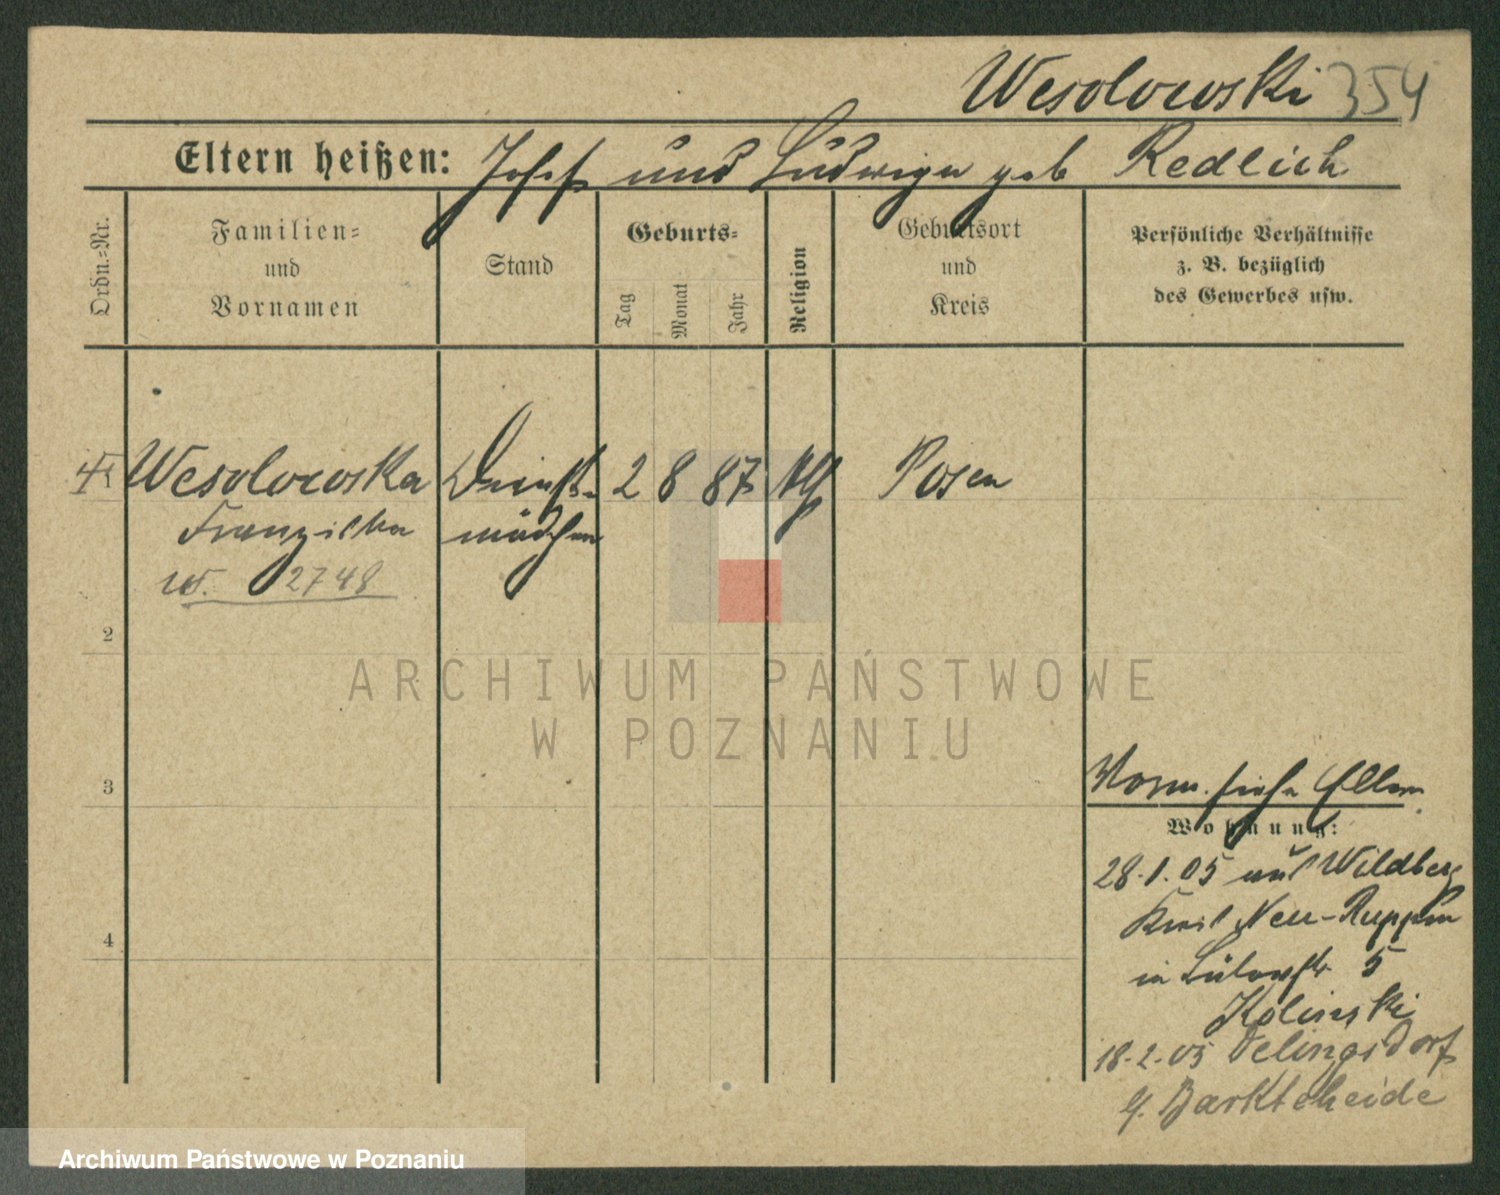 Wesolowski 354
Eltern heißen: Josef und Ludwiga geb Redlich
Ordn.=Nr.
Familien=
und
Vornamen
Stand
Geburts=
Tag
Monat
Jahr
Religion
Geburtsort
und
Kreis
Persönliche Verhältnisse
z. B. bezüglich
des Gewerbes usw.
Wesolowska Dienst- 2 8 87 Posen
Franziska mädchen
2748
2
3
4
Vorm. siehe Eltern
Wohnung:
28.1.05 aus Wildberg
Kreis Neu-Ruppin
in Bülowstr 5
Kolinski
18.2.05 Delingsdorf
b/. Barkteheide
ARCHIWUM PAŃSTWOWE
W POZNANIU
Archiwum Państwowe w Poznaniu